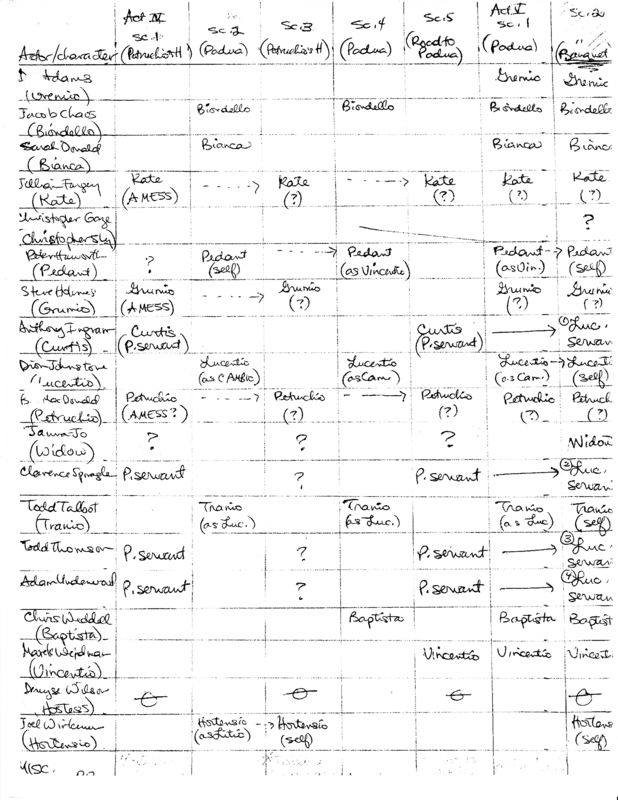 Act IV Act V
Sc. 1 Sc. 2 Sc. 3 Sc. 4 Sc. 5 Sc. 1 Sc. 2
Actor/character (Petruchio's H) (Padua) (Petruchio's H) (Padua) (Road to Padua) (Padua) (Banquet
Adams Gremio Gremio
(Gremio)
Jacob Chaos Biondello Biondello Biondello Biondello
(Biondello)
Sarah Donald Bianca Bianca Bianca
(Bianca)
Kate ----> Kate ----> Kate Kate Kate
(Kate) (A MESS) (?) (?) (?) (?)
Christopher Gaze ?
(Christopher Sly)
Peter Haworth ? Pedant ----> Pedant Pedant → Pedant
(Pedant) (self) (as Vincentio) (as Vin.) (self)
Steve Holmes Grumio ----> Grumio Grumio Grumio
(Grumio) (A MESS) (?) (?) (?)
Anthony Ingram Curtis Curtis → ① Luc.
(Curtis) (P. servant) (P. servant) Servan
Dion Johnstone Lucentio Lucentio Lucentio → Lucenti
(Lucentio) (as CAMBIO) (as Cam.) (as Cam.) (self)
MacDonald Petruchio ----> Petruchio ----> Petruchio Petruchio Petruch
(Petruchio) (A MESS?) (?) (?) (?) (?)
Janna-Jo ? ? ? Widow
(Widow)
Clarence Sponagle P. servant ? P. servant → ② Luc.
Servan
Todd Talbot Tranio Tranio Tranio Tranio
(Tranio) (as Luc.) (as Luc.) (as Luc) (self)
Todd Thomson P. servant ? P. servant → ③ Luc.
Servan
Adam Underwood P. servant ? P. servant → ④ Luc.
Servan
Chris Weddell Baptista Baptista Baptist
(Baptista)
Marek Weidman Vincentio Vincentio Vincenti
(Vincentio)
Wilson
Hostess)
Joel Wirkunen Hortensio --> Hortensio Hortens
(Hortensio) (as Litio) (self) (self)
MISC.